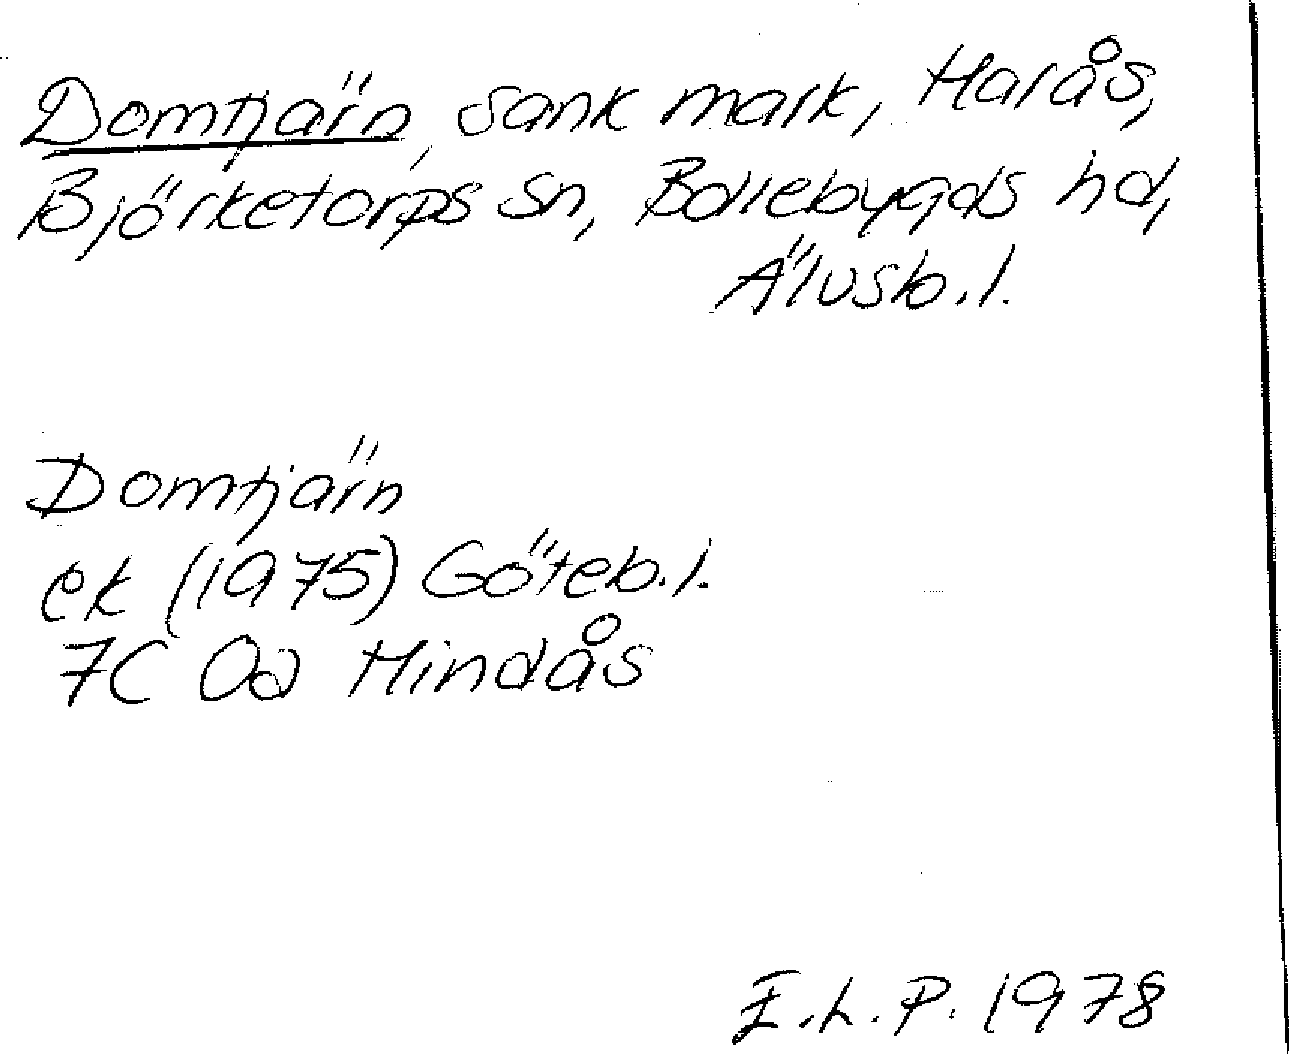 Domtjärn, sank mark, Harås,
Björketorps sn, Bollebygds hd,
Älvsb.l.
Domtjärn
ek (1975) Göteb.l.
7C 0a Hindås
E.L.P. 1978